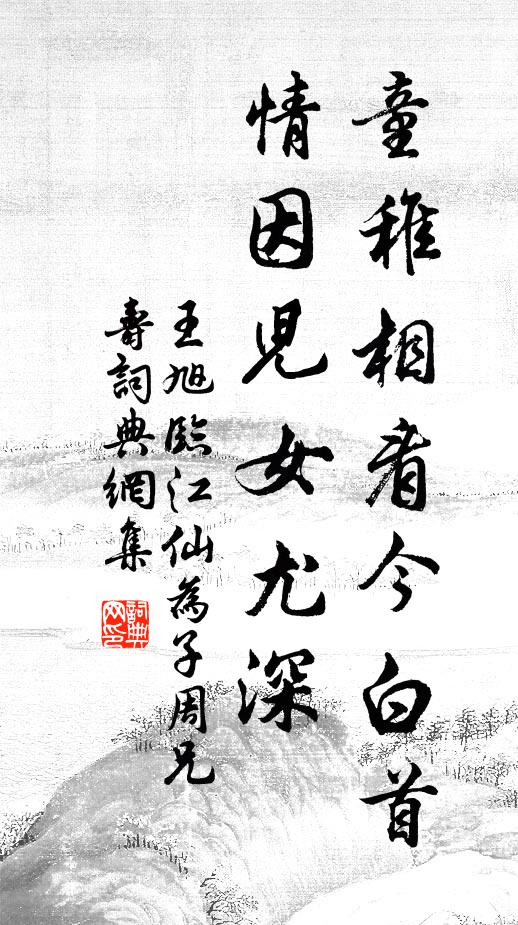 童稚相看今白首
情因児女尤深
王旭臨江仙為子周兄
壽詞典網集
詞典網印